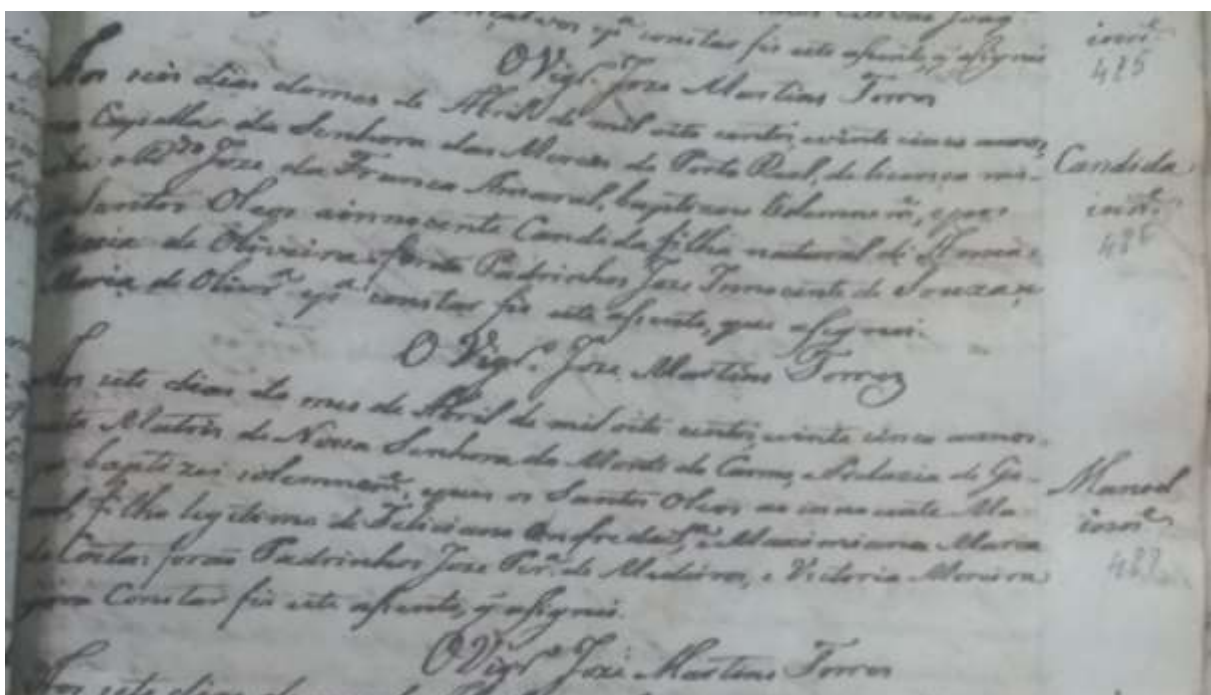 constar fis este asento, q̃ asignei
innoc.e
485
O Vigr.o Joze Martins Torres
Aos seis dias do mes de Abril de mil oito centos, vinte cinco annos,
na Capella da Senhora das Merces de Porto Real, de licença mi-
nha o Rdo Joze da Franca Amaral, baptizou solemnem.te, e pos
Candida
Santos Oleos a innocente Candida filha natural de
innoc.e
486
de Oliveira forão Padrinhos Joze Innocente de Souza, e
Maria de Olivr.a e p.a constar fis este asento, que asignei.
O Vigr.o Joze Martins Torres
Aos sete dias do mes de Abril de mil oito centos, vinte cinco annos.
nesta Matris de Nossa Senhora do Monte do Carmo, e
baptizei solemnem.te, e pus os Santos Oleos ao innocente Ma-
Manoel
innoc.e
noel, filho legitimo de Feliciano e Maximiana Maria
da Costa: forão Padrinhos Joze Per.a de Medeiros, e Victoria Moreira
para Constar fis este asento, q̃ asignei.
O Vigr.o Joze Martins Torres
Aos sete dias